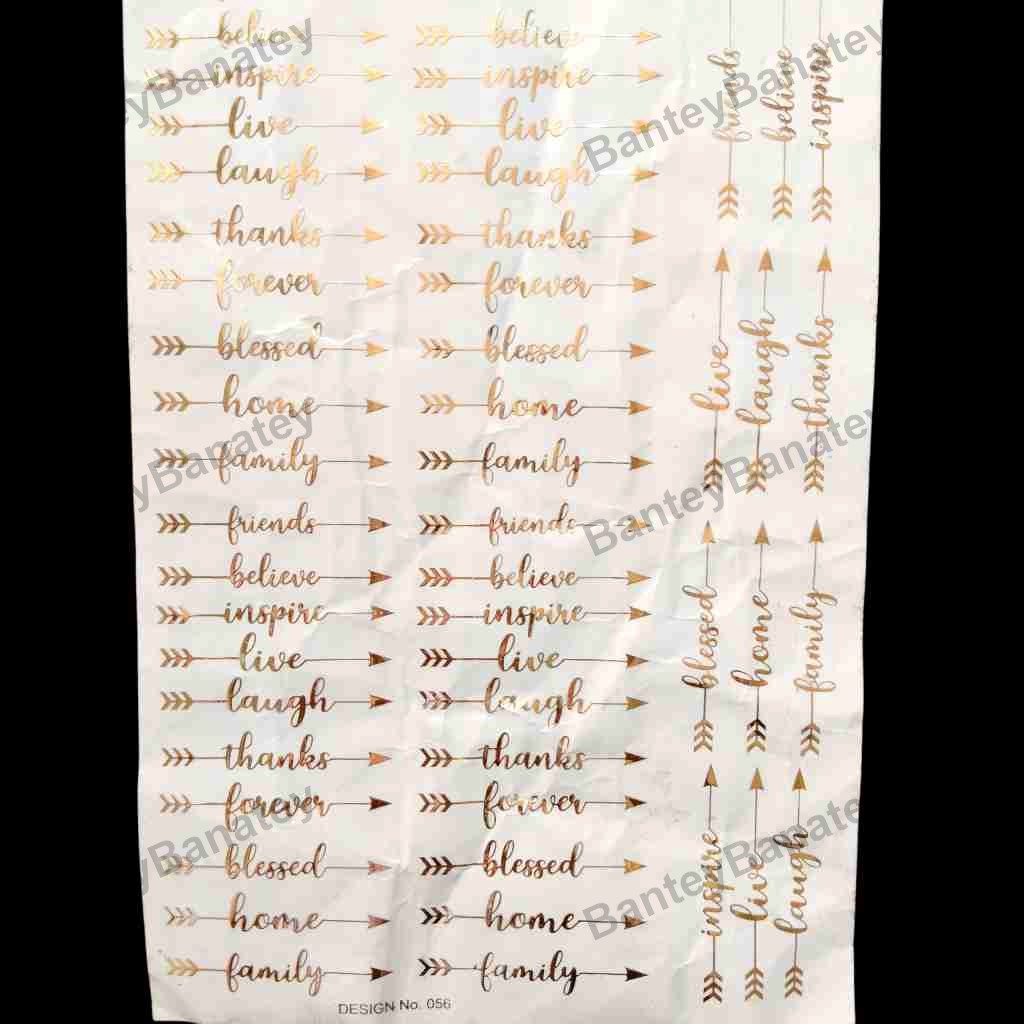 believe believe
inspire inspire
live live
laugh laugh
thanks thanks
forever forever
blessed blessed
home home
family family
friends friends
believe believe
inspire inspire
live live
laugh laugh
thanks thanks
forever forever
blessed blessed
home home
family family
DESIGN No. 056
friends believe inspire
live laugh thanks
blessed home family
inspire live laugh
BanteyBanatey
BanteyBanatey
BanteyBanatey
BanteyBanatey
BanteyBanatey
BanteyBanatey